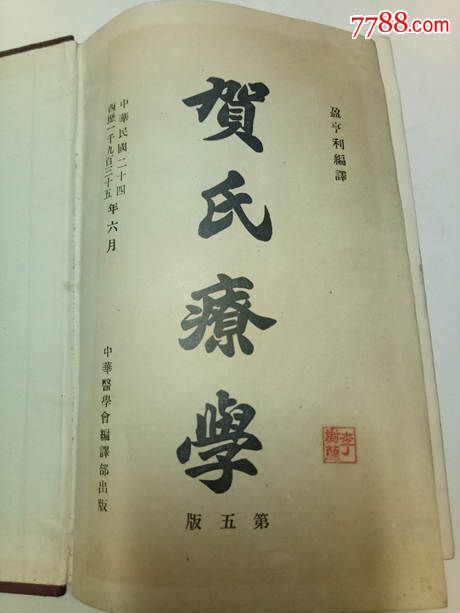 7788.com
盈亨利編譯
賀氏療學
第五版
中華民國二十四
西歷一千九百三十五年六月
中華醫學會編譯部出版